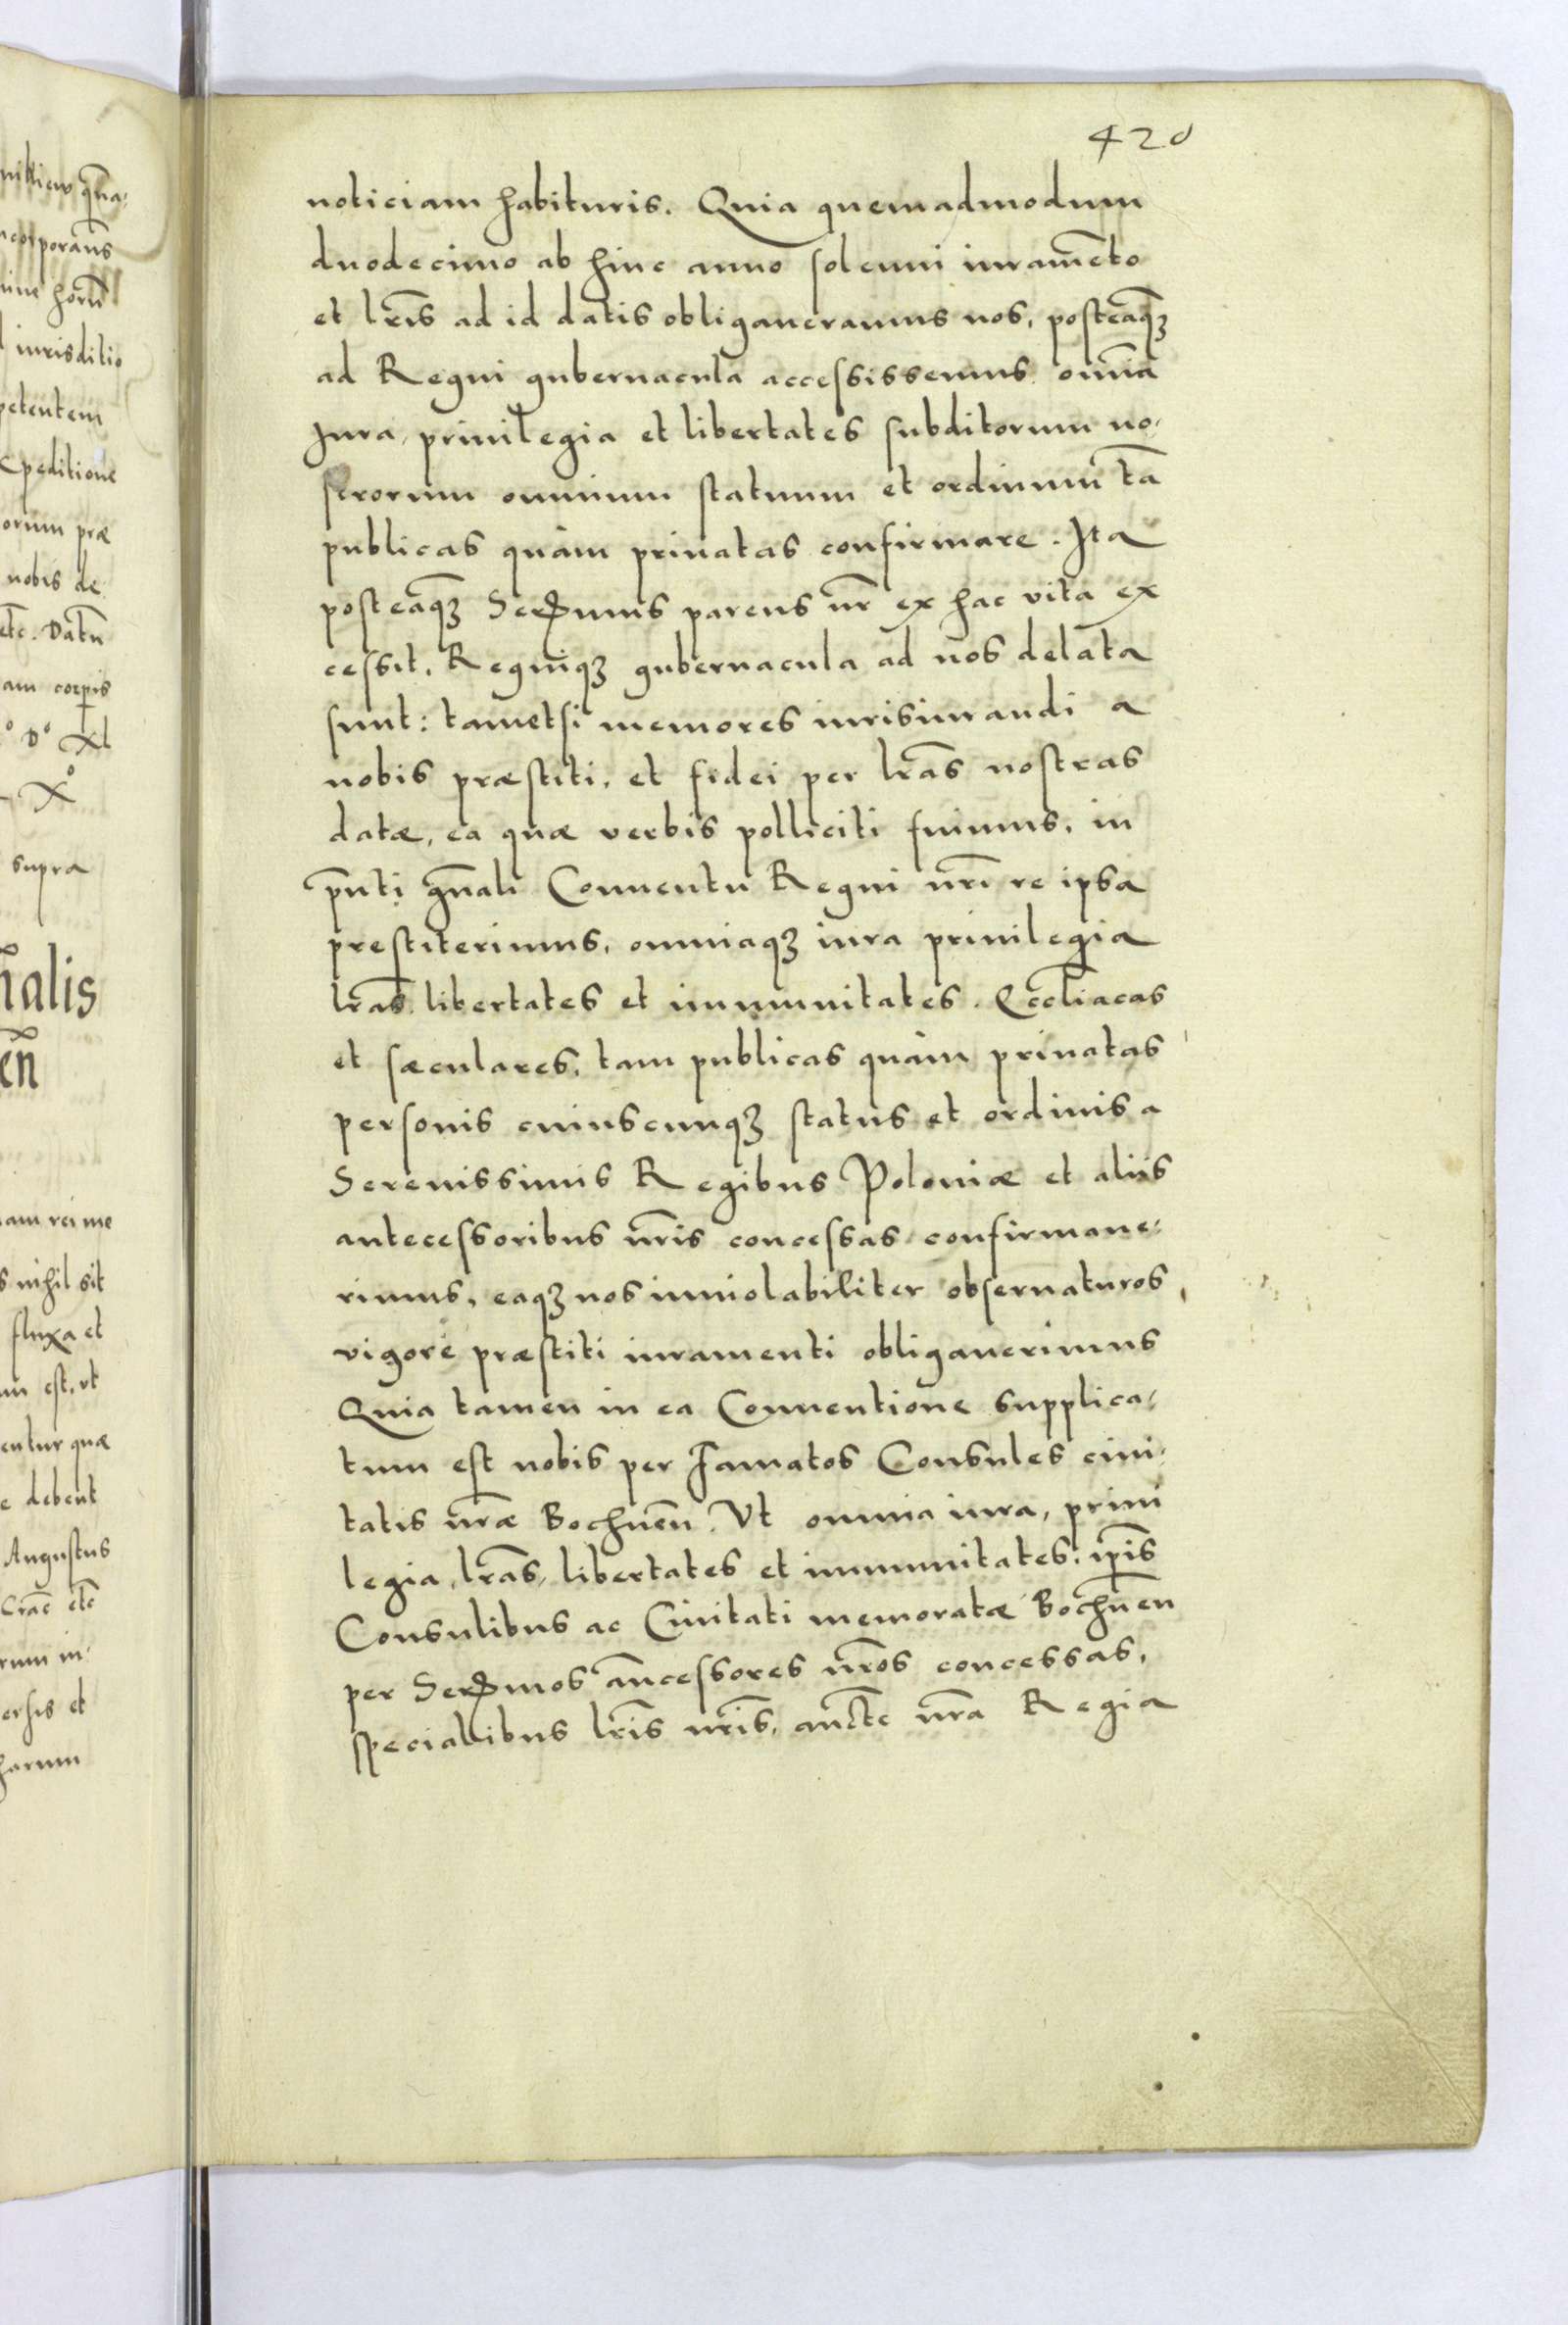 420
noticiam habituris. Quia quemadmodum
duodecimo ab hinc anno solenni iuramēto
et lr̄is ad id datis obligaueramus nos, posteaq̄ꝫ
ad Regni gubernacula accessissemus omīa
Jura, priuilegia et libertates subditorum no-
strorum omnium statuum et ordinum tā
publicas quàm priuatas confirmare. Ita
posteaq̄ꝫ Serꝫmus parens nr̄ ex hac vita ex
cessit, Regniqꝫ gubernacula ad nos delata
sunt: tametsi memores iurisiurandi a
nobis præstiti, et fidei per lr̄as nostras
datæ, ea quæ verbis polliciti fuimus, in
p̄nti gn̄ali Conuentu Regni nr̄i re ipsa
prestiterimus, omniaqꝫ iura priuilegia
lr̄as libertates et immunitates. Eccl̄iacas
et sæculares, tam publicas quàm priuatas
personis cuiuscunqꝫ status et ordinis a
Serenissimis Regibus Poloniæ et aliis
antecessoribus nr̄is concessas confirmaue-
rimus, eaqꝫ nos inuiolabiliter obseruaturos,
vigore præstiti iuramenti obligauerimus
Quia tamen in ea Conuentione supplica-
tum est nobis per Famatos Consules ciui-
tatis nr̄æ Bochnen̄. Vt omnia iura, priui
legia, lr̄as, libertates et immunitates, ip̄is
Consulibus ac Ciuitati memoratæ Bochn̄en
per Serꝫmos ān̄cessores nr̄os concessas,
speciallibus lr̄is nr̄is, auctē nr̄a Regia
petentem
orum præ
nobis de
supra
nihil sit
fluxa et
debent
Augustus